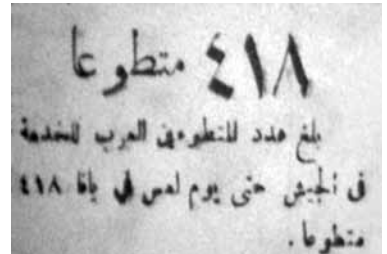 ٤١٨ متطوعا
بلغ عدد المتطوعين العرب للخدمة
في الجيش حتى يوم امس في يافا ٤١٨
متطوعا .